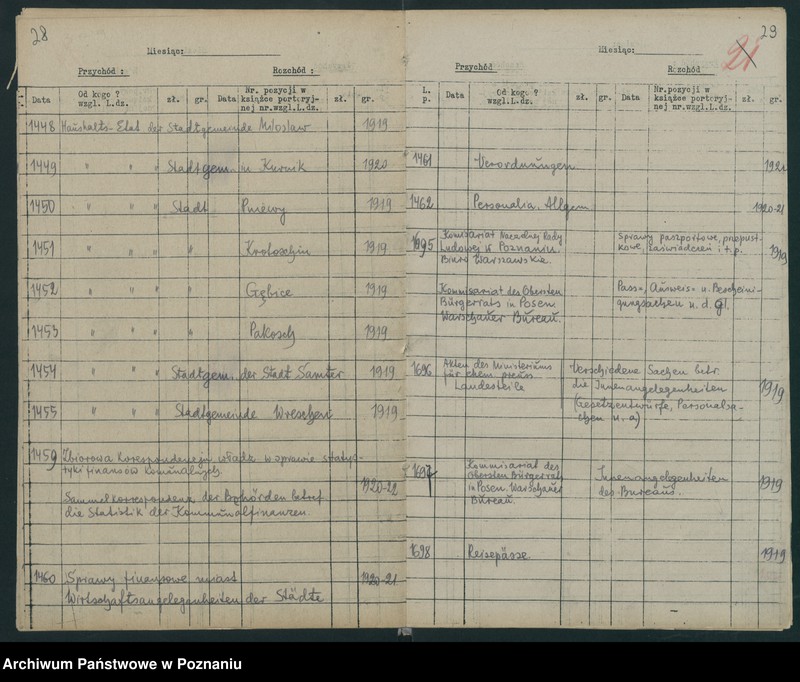 28
Miesiąc:
Przychód : Rozchód :
Data Od kogo ? wzgl. L.dz. zł. gr. Data Nr. pozycji w książce portoryjnej nr.wzgl.L.dz. zł. gr.
1448 Haushalts-Etat der Stadtgemeinde Miloslaw 1919
1449 " " " Stadtgem. in Kurnik 1920
1450 " " " Stadt Pniewy 1919
1451 " " " " Krotoschin 1919
1452 " " " " Gębice 1919
1453 " " " " Pakosch 1919
1454 " " " Stadtgem. der Stadt Samter 1919
1455 " " " Stadtgemeinde Wreschen 1919
1459 Zbiorowa korespondencja władz w sprawie statys-
tyki finansów komunalnych.
1920-22
Sammelkorrespondenz der Behörden betref
die Statistik der Kommunalfinanzen.
1460 Sprawy finansowe miast 1920-21
Wirtschaftsangelegenheiten der Städte
29
21
Miesiąc:
Przychód Rozchód
L. p. Data Od kogo ? wzgl. L.dz. zł. gr. Data Nr.pozycji w książce portoryjnej nr.wzgl.L.dz. zł. gr.
1461 Verordnungen 1921
1462 Personalia. Allgem 1920-21
1695 Komisariat Naczelnej Rady Sprawy paszportowe, przepust-
Ludowej w Poznaniu. kowe, zaświadczeń i t.p. 1919
Biuro Warszawskie.
Kommissariat des Obersten Pass-, Ausweis- u. Bescheini-
Bürgerrats in Posen. gungsachen u. d. gl.
Warschauer Bureau.
1696 Akten des Ministeriums Verschiedene Sachen betr.
für ehem. preuss. die Innenangelegenheiten 1919
Landesteile (Gesetzentwürfe, Personalsa-
chen u. a)
1697 Kommissariat des
obersten Bürgerrats Innenangelegenheiten 1919
in Posen. Warschauer des Bureaus.
Bureau.
1698 Reisepässe 1919
Archiwum Państwowe w Poznaniu